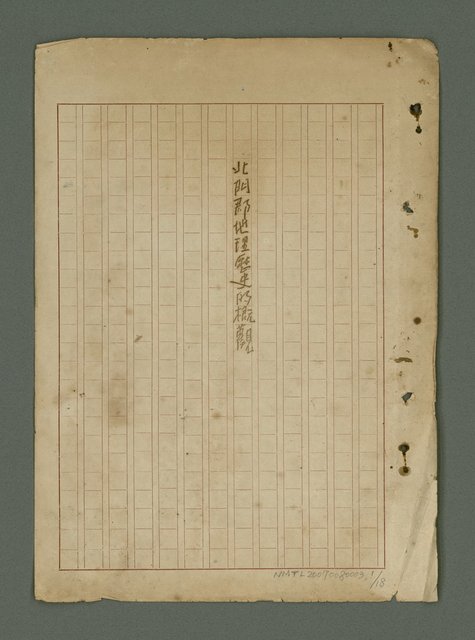 北門郡地理歷史的概觀
NMTL20070080003, 1/18